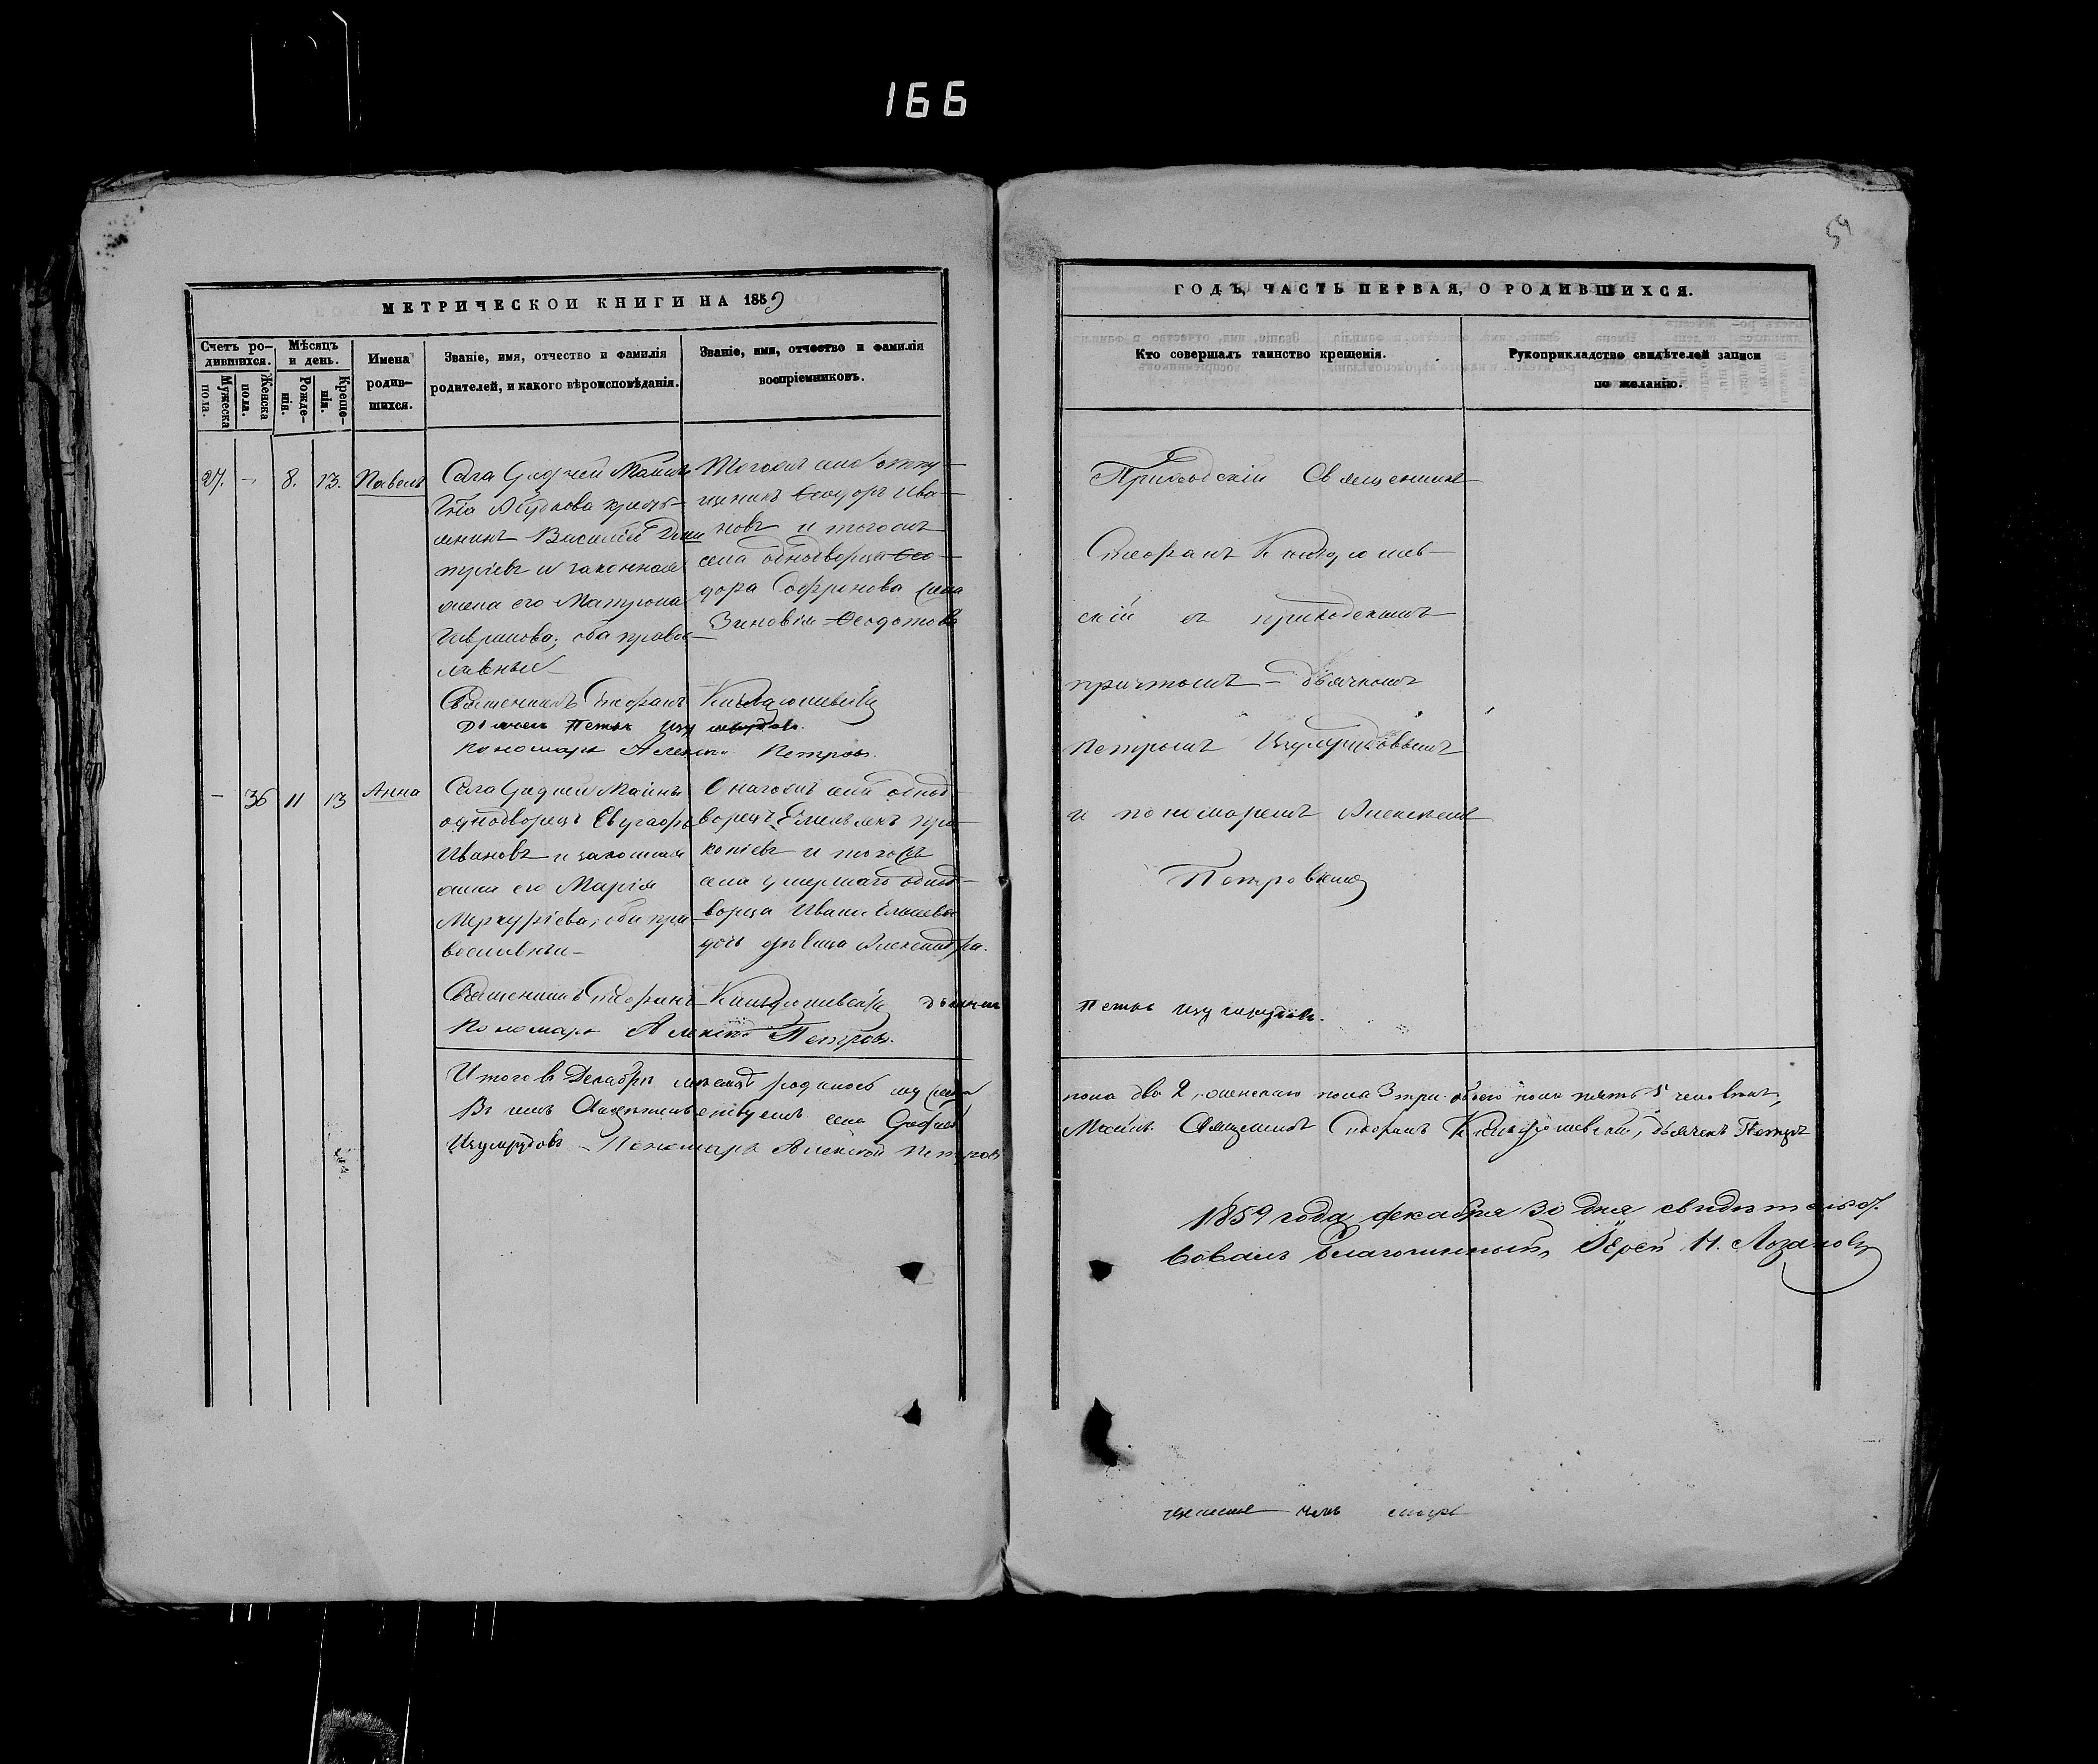 166
59
МЕТРИЧЕСКОЙ КНИГИ НА 1859
Счетъ ро-
дившихся.
Мужеска
пола.
Женска
пола.
Мѣсяцъ
и день.
Рожде-
нія.
Креще-
нія.
Имена
родив-
шихся.
Званіе, имя, отчество и фамилія
родителей, и какого вѣроисповѣданія.
Званіе, имя, отчество и фамилія
воспріемниковъ.
27. - 8. 13. Павелъ
Села Средней
крестъ-
янинъ Василій Дми
тріевъ и законная
жена его Матрона
Гаврилова; оба право
славные
Тогожъ села отпу-
щеникъ Ѳеодоръ Ива-
новъ и тогожъ
села однодворца Ѳео-
дора Софронова
Зиновія Ѳеодотова
Священникъ Стефанъ
Дьячекъ Петръ Изумрудовъ.
Пономарь Алексѣй Петровъ.
- 36 11 13 Анна
Села Средней Маинъ
однодворецъ Евграфъ
Ивановъ и законная
жена его Марія
Меркуріева; оба пра-
вославные-
Онагожъ села однод-
ворецъ Емельянъ про
копіевъ и тогожъ
села умершаго однод-
ворца Ивана
дочь дѣвица Александра.
Священникъ Стефанъ дьячекъ
Пономарь Алексѣй Петровъ.
Итого въ Декабрѣ мѣсяцѣ родилось мужеска
Въ чемъ свидѣтельствуемъ села Средней
Изумрудовъ - Пономарь Алексѣй Петровъ
ГОДЪ, ЧАСТЬ ПЕРВАЯ, О РОДИВШИХСЯ.
Кто совершалъ таинство крещенія.
Рукоприкладство свидѣтелей записи
по желанію.
Приходскій Священникъ
Стефанъ
скій съ приходскимъ
причтомъ - дьячкомъ
Петромъ Изумрудовымъ
и пономаремъ Алексѣемъ
Петровымъ
Петръ Изумрудовъ.
пола два 2, женскаго пола 3 три. обоего пола пять 5 человѣкъ,
Маинъ Священникъ Стефанъ дьячекъ Петръ
1859 года декабря 30 дня свидѣтельст
вовалъ благочинный, Іерей Н. Лозановъ